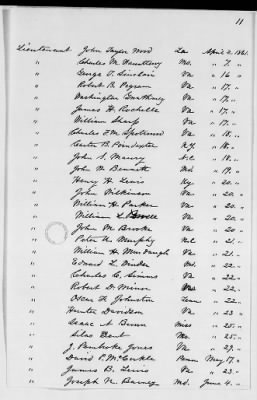 11
Lieutenant John Taylor Wood La April 2, 1861.
" Charles M. Fauntleroy " 7. "
" George T. Sinclair Va " 16 "
" Robert B. Pegram Va " 17. "
" Washington Gwathmey Va " 17. "
" James H. Rochelle Va " 17. "
" William Sharp Va " 17. "
" Charles F. M. Spotswood Va " 18. "
" Carter B. Poindexter " 18. "
" John S. Maury " 18. "
" John W. Bennett Md " 19. "
" Henry H. Lewis " 20. "
" John Wilkinson Va " 20. "
" William H. Parker Va " 20. "
" William L. Va " 20. "
" John M. Brooke Va " 20. "
" Peter U. Murphy N.C " 21. "
" William H. Murdaugh Va " 21. "
" Edward L. Winder Md " 22. "
" Charles C. Simms Va " 22. "
" Robert D. Minor Va " 22. "
" Oscar F. Johnston Tenn " 22. "
" Hunter Davidson Va " 23 "
" Isaac N. Brown Miss " 25. "
" Silas Bent Mo. " 25. "
" J. Pembroke Jones Va " 29. "
" David P. McCorkle Penn May 17. "
" James B. Lewis Va " 23. "
" Joseph N. Barney Md. June 4. "